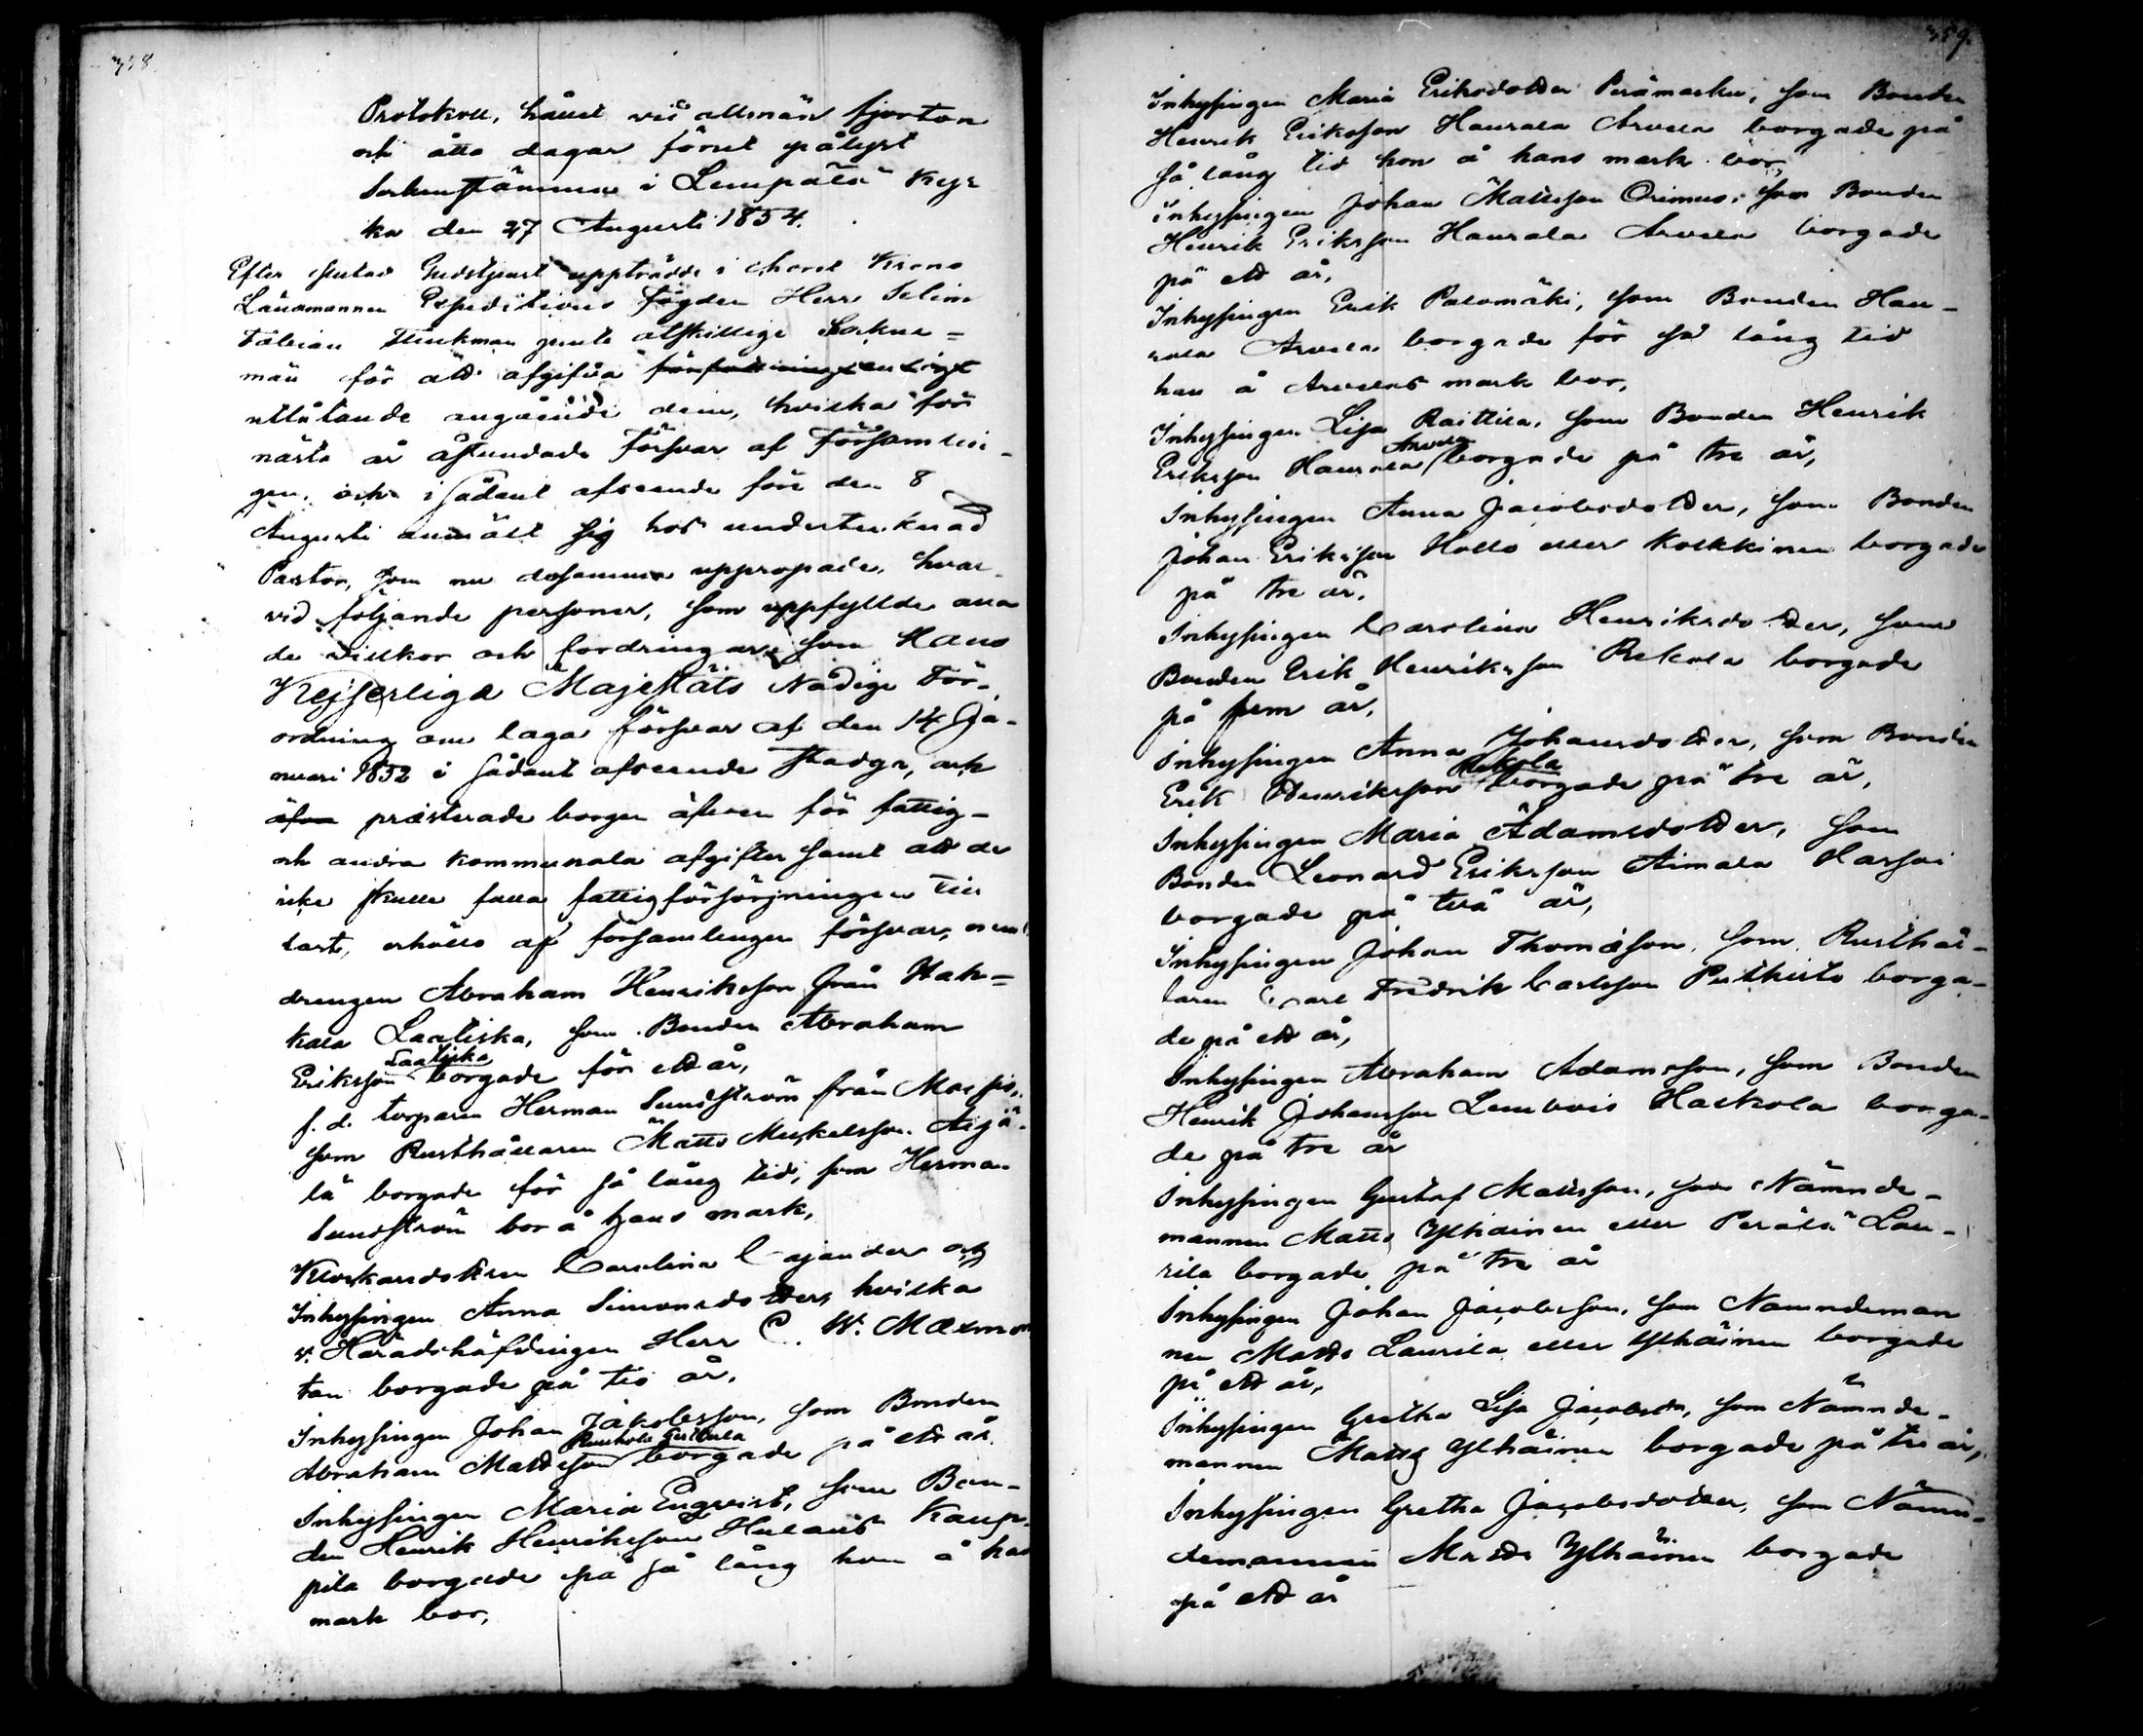 358
Protokoll, hållit vid allmän fjorton
och åtta dagar förut pålyst
Sockenstämma i Lempälä Kyr
ka den 27 Augusti 1854.
Efter slutad Gudstjenst uppträdde i choret Krono
Länsmannen Expeditions fogden Herr Selim
Fabian Flinkman jemte åtskillige Sockne=
män för att afgifva författningsenligt
utlåtande angående dem, hvilka för
nästa år åstundade Försvar af Församlin-
gen, och i sådant afseende före den 8
Augusti anmält sig hos undertecknad
Pastor, som nu desamma uppropade, hvar-
vid följande personer, som uppfyllde alla
de villkor och fordringar, som Hans
Kejserliga Majestäts Nådiga För-
ordning om laga försvar af den 14 Ja-
nuari 1852 i sådant afseende stadga, och
äfven presterade borgen äfven för fattig-
och andra kommunala afgifter samt att de
icke skulle falla fattigförsörjningen till
last, erhöllo af församlingen försvar,
drengen Abraham Henriksson från Hak=
kala Laatiska, som Bonden Abraham
Laatiska
Eriksson borgade för ett år,
f. d. torparen Herman Sundström från Moisio,
som Rusthållaren Matts Mickelsson Äijä-
lä borgade för så lång tid, som Herman
Sundström bor å hans mark,
Klockaredottren Carolina Cajander och
Inhysingen Anna Simonsdotter, hvilka
v. Häradshöfdingen Herr C. W. Maxmon
tan borgade på tio år.
Inhysingen Johan Jakobsson, som Bonden
Kuokola
Abraham Mattsson borgade på ett år.
Inhysingen Maria Engqvist, som Bon-
den Henrik Henriksson Kaup-
pila borgade på så lång hon å hans
mark bor,
359.
Inhysingen Maria Eriksdotter Perämaeku, som Bonden
Henrik Eriksson Haurala Arvela borgade på
så lång tid hon å hans mark bor,
Inhysingen Johan Mattsson Orimus, som Bonden
Henrik Eriksson Haurala Arvela borgade
på ett år,
Inhysingen Erik Palomäki, som Bonden Hau-
rala Arvela borgade för så lång tid
han å Arvelas mark bor,
Inhysingen Lisa Raittila, som Bonden Henrik
Arvela
Eriksson Haurala borgade på tre år,
Inhysingen Anna Jacobsdotter, som Bonden
Johan Eriksson Hollo eller Kolkkinen borgade
på tre år.
Inhysingen Carolina Henriksdotter, som
Bonden Erik Henriksson Rekola borgade
på fem år,
Inhysingen Anna Johansdotter, som Bonden
Rekola
Erik Henriksson borgade på tre år,
Inhysingen Maria Adamsdotter, som
Bonden Leonard Eriksson Aimala
borgade på två år,
Inhysingen Johan Thomasson, som Rusthål-
laren Carl Fredrik Carlsson borga-
de på ett år,
Inhysingen Abraham Adamsson, som Bonden
Henrik Johansson Lembois Hackola borga-
de på tre år
Inhysingen Gustaf Mattsson, som Nämnde-
mannen Matts Ylhäinen eller Perälä Lau-
rila borgade på tre år
Inhysingen Johan Jacobsson, som Namndeman
nen Matts Laurila eller Ylhäinen borgade
på ett år,
Inhysingen Gretha Lisa Jacobsdr, som Nämnde-
mannen Matts Ylhäinen borgade på tre år,
Inhysingen Gretha Jacobsdotter, som Nämn-
demannen Matts Ylhäinen borgade
på ett år